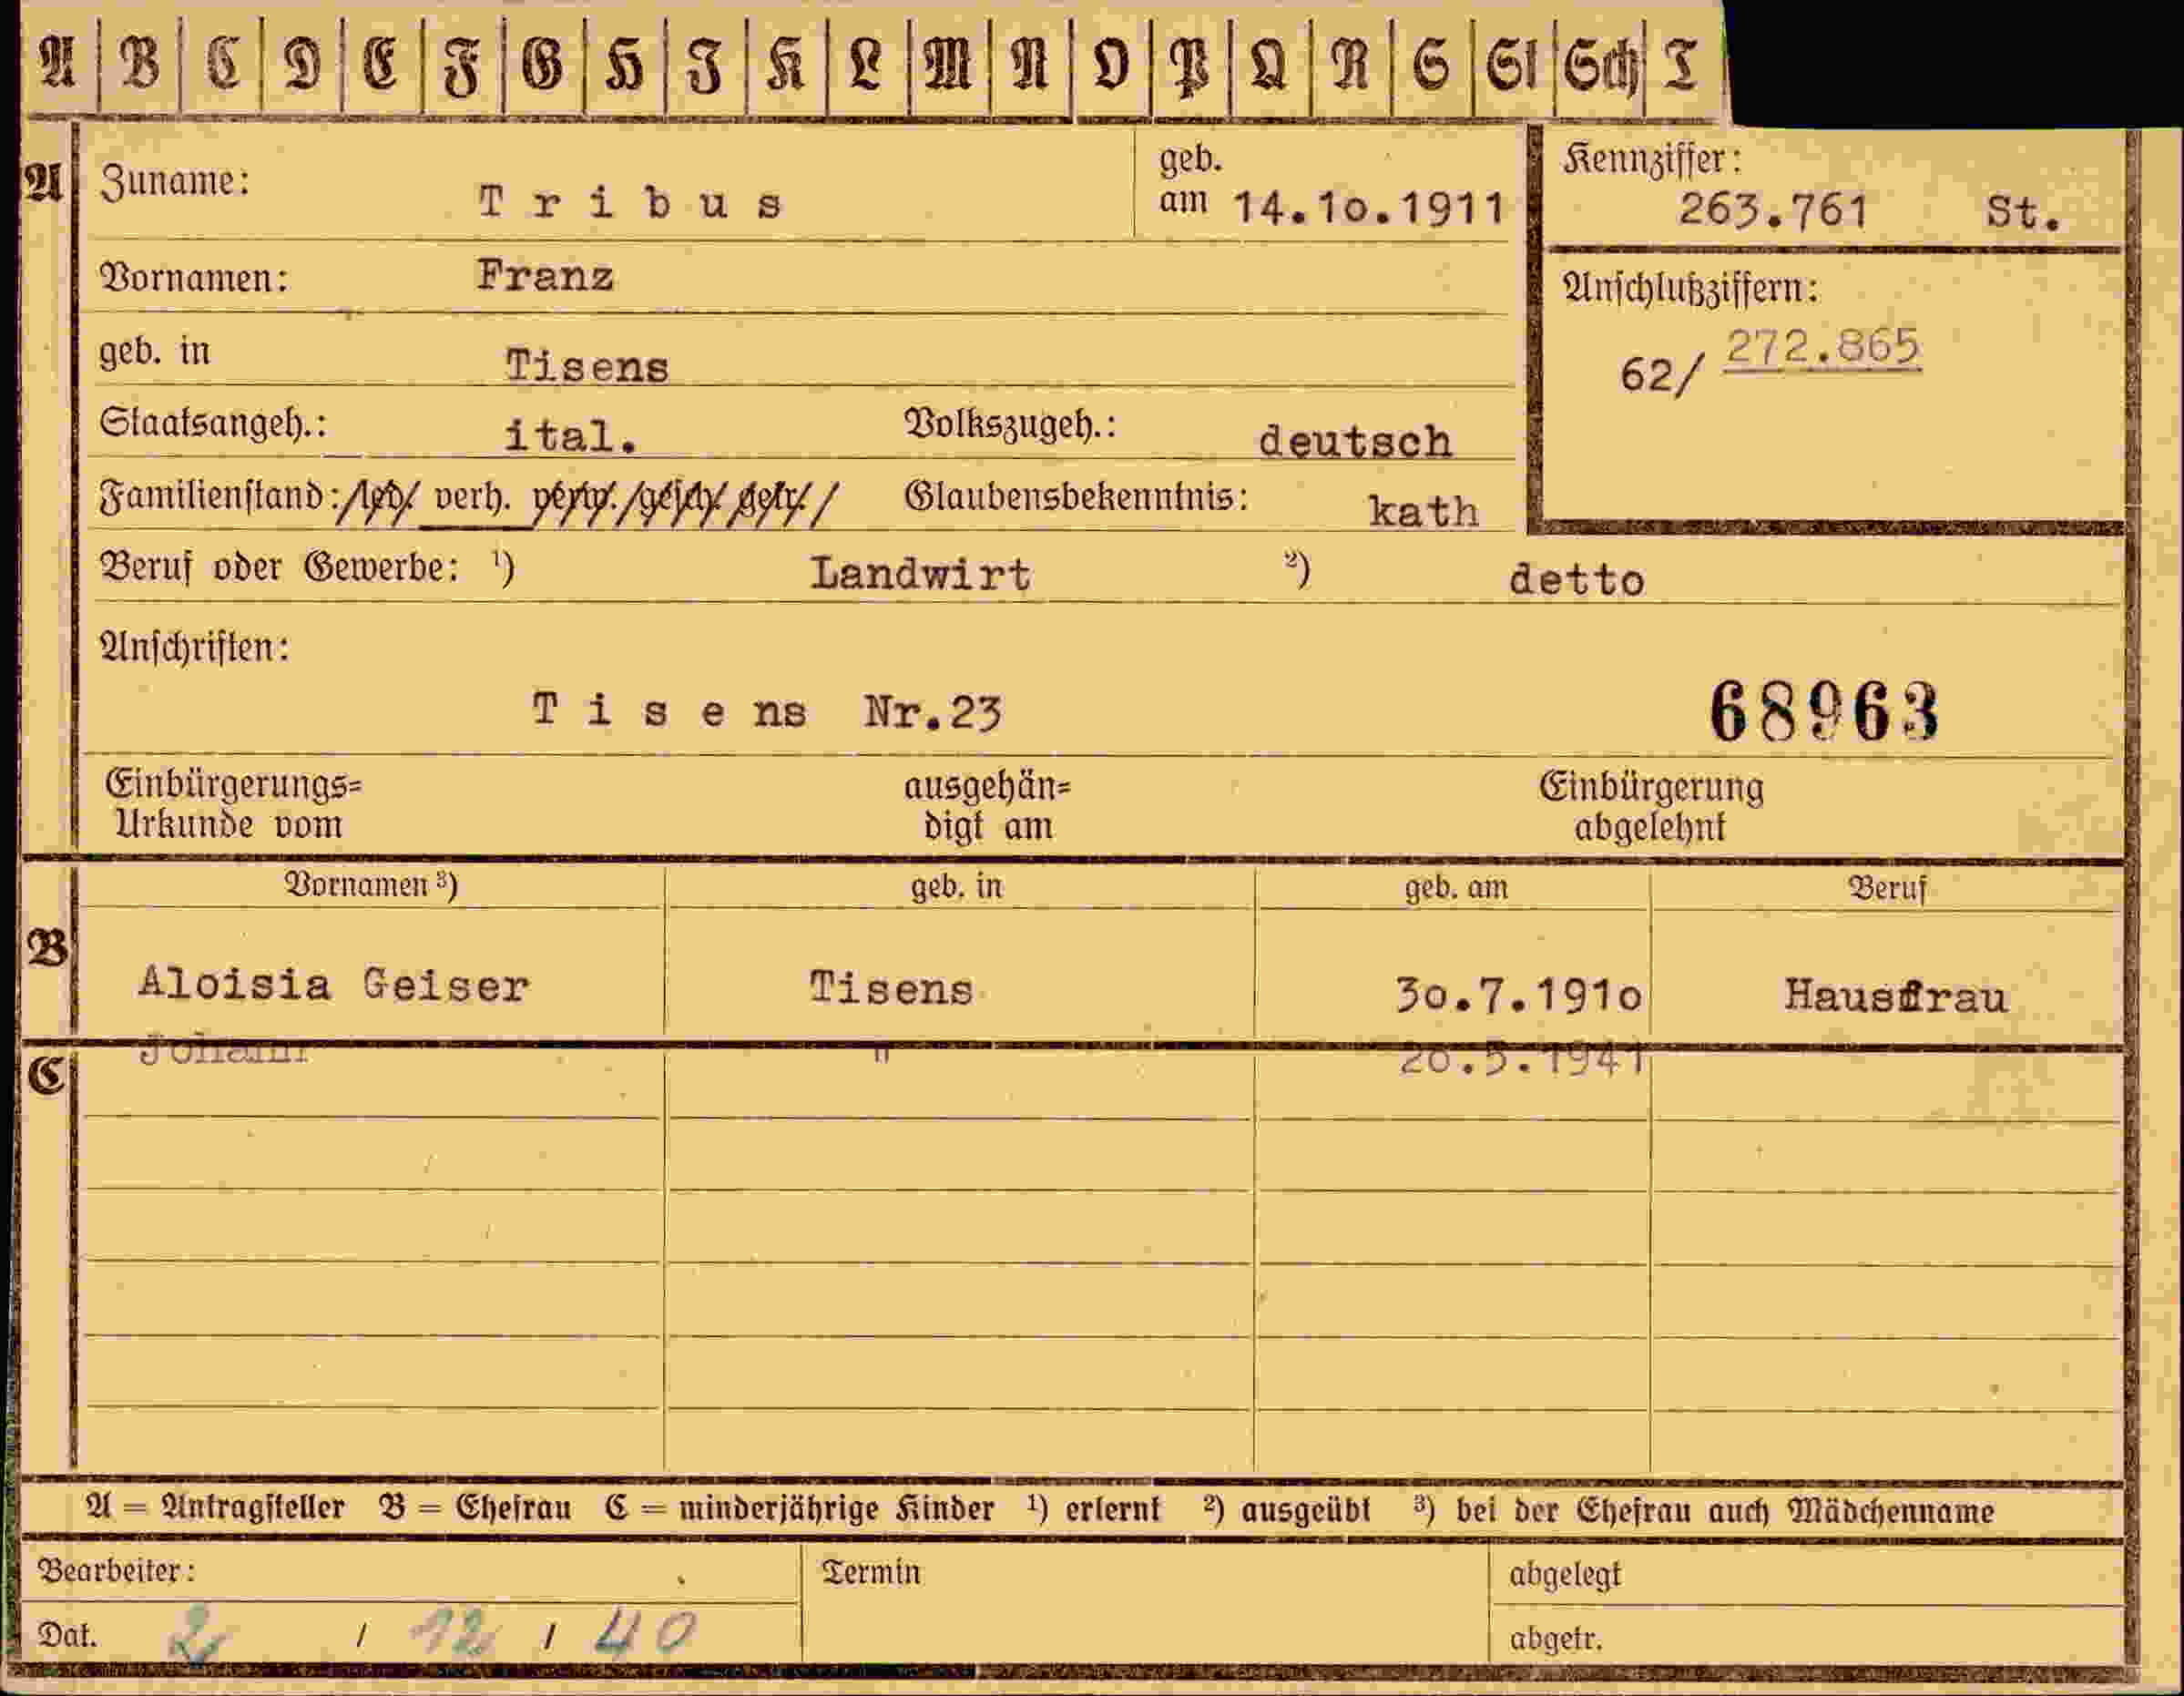 A B C D E F G H I K L M N O P Q R S St Sch T
A Zuname: Tribus geb. am 14.10.1911 Kennziffer: 263.761 St.
Vornamen: Franz Anschlußziffern:
geb. in Tisens 62/ 272.865
Staatsangeh.: ital. Volkszugeh.: deutsch
Familienstand: led. verh. verw. gesch. getr. Glaubensbekenntnis: kath
Beruf oder Gewerbe: ¹) Landwirt ²) detto
Anschriften:
Tisens Nr.23 68963
Einbürgerungs= ausgehän= Einbürgerung
Urkunde vom digt am abgelehnt
Vornamen ³) geb. in geb. am Beruf
B Aloisia Geiser Tisens 30.7.1910 Hausfrau
C Johann " 20.5.1941
A = Antragsteller B = Ehefrau C = minderjährige Kinder ¹) erlernt ²) ausgeübt ³) bei der Ehefrau auch Mädchenname
Bearbeiter: Termin abgelegt
Dat. 2 / 12 / 40 abgetr.